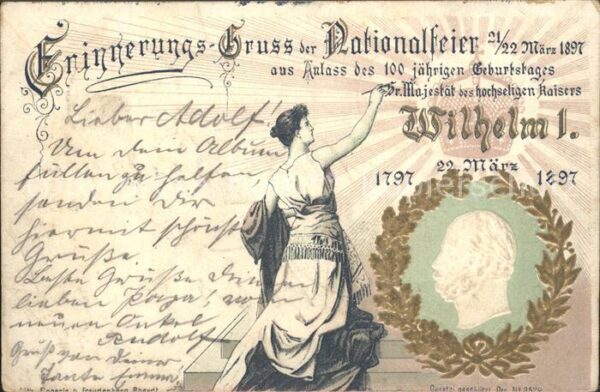 Erinnerungs-Gruss der Nationalfeier 21/22 März 1897
aus Anlass des 100 jährigen Geburtstages
Sr. Majestät des hochseligen Kaisers
Wilhelm I.
22. März
1797 1897
Lieber Adolf!
Um dem Album
füllen zu helfen,
senden Dir
hiermit schönste
Grüße.
Beste Grüße Deinem
lieben Papa, vom
neuen Onkel
Rudolf
Gruß von Deiner
Tante Emma